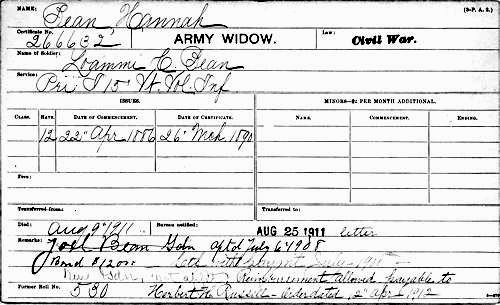 NAME: Bean Hannah (3-P. A. S.)
Certificate No. 266632 ARMY WIDOW. Law: Civil War.
Name of Soldier: Loammi C. Bean
Service: Pri I 15" Vt. Vol. Inf
ISSUES. MINORS—$2 PER MONTH ADDITIONAL.
CLASS. RATE. DATE OF COMMENCEMENT. DATE OF CERTIFICATE. NAME. COMMENCING. ENDING.
12 22" Apr 1886 26" Mch 1890
Transferred from Transferred to:
Died: Aug 9" 1911 Bureau notified: AUG 25 1911 letter
Remarks: Joel Bean Gdn aptd July 6 1908
Bond $1200
New Gdn Reimbursement allowed payable to
Former Roll No. 530 Herbert H. Russell order dated 12" Apr 1912